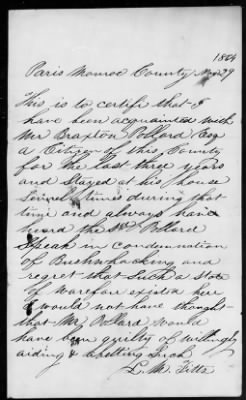 1864
Paris Monroe County Mo 29
This is to certify that I
have been acquainted with
Mr Braxton Pollard Esq
a Citizen of this County
for the last three years
and Stayed at his house
Several times during that
time and always have
heard the Sd Pollard
Speak in condemnation
of Bushwhacking and
regret that Such a State
of warefare existed here
I would not have thought
that Mr Pollard would
have been guilty of willingly
aiding & abetting Such
L. M. Titts